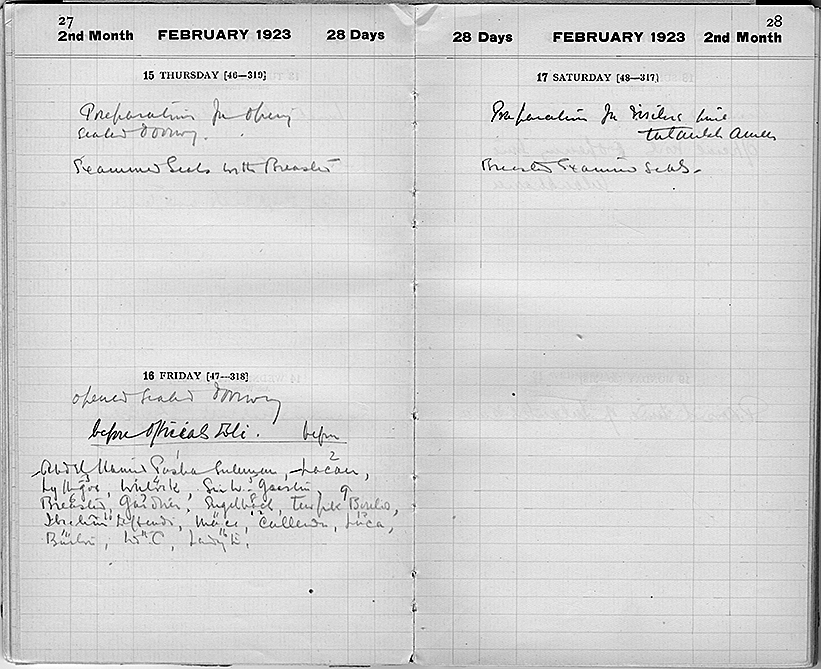 27
2nd Month FEBRUARY 1923 28 Days
15 THURSDAY [46—319]
Preparations for opening
sealed doorway.
Examined Seals with Breasted
16 FRIDAY [47—318]
opened sealed doorway
before officials &c.
before
2
Abdel Hamid Pasha Suleman, Lacau,
Lythgoe, Winlock, Sir W. Garstin,
9
Breasted, Gardiner, Engelbach, Tewfik Boulos,
Ibrahim Effendi, Mace, Callender, Lucas,
Burton, Ld. C, Lady E.
28
28 Days FEBRUARY 1923 2nd Month
17 SATURDAY [48—317]
Preparation for visitors
Breasted Examined Seals.